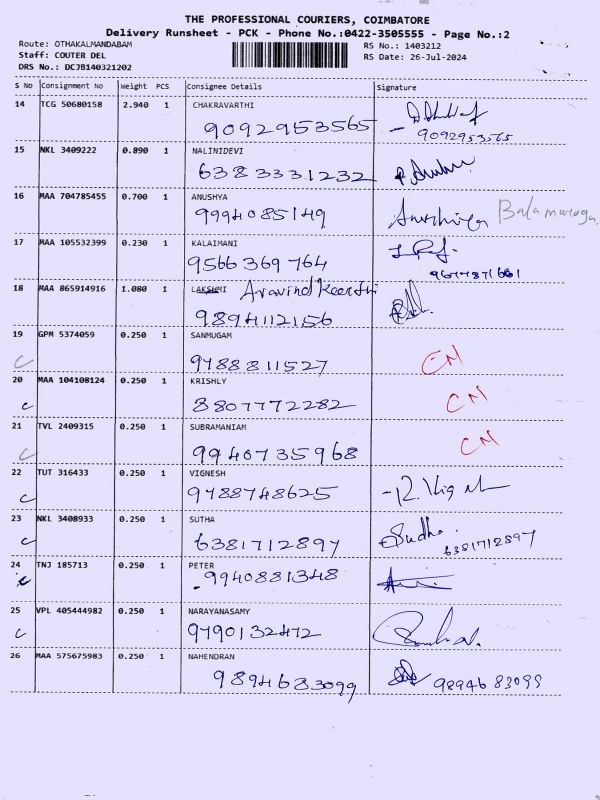 THE PROFESSIONAL COURIERS, COIMBATORE
Delivery Runsheet - PCK - Phone No.:0422-3505555 - Page No.:2
Route: OTHAKALMANDABAM RS No.: 1403212
Staff: COUTER DEL RS Date: 26-Jul-2024
DRS No.: DCJB140321202
S No Consignment No Weight PCS Consignee Details Signature
14 TCG 50680158 2.940 1 CHAKRAVARTHI
9092953565 9092953565
15 NKL 3409222 0.890 1 NALINIDEVI
6383331232
16 MAA 704785455 0.700 1 ANUSHYA
9994085149 Balamuruga
17 MAA 105532399 0.230 1 KALAIMANI
9566369764 9677871661
18 MAA 865914916 1.080 1 LAKSHMI Aravind Keerthi
9894112156
19 GPM 5374059 0.250 1 SANMUGAM
C 9788811527 CN
20 MAA 104108124 0.250 1 KRISHLY
C 8807772282 CN
21 TVL 2409315 0.250 1 SUBRAMANIAM
C 9940735968 CN
22 TUT 316433 0.250 1 VIGNESH
C 9788748625
23 NKL 3408933 0.250 1 SUTHA
C 6381712897 Sudha. 6381712897
24 TNJ 185713 0.250 1 PETER
C 9940881348
25 VPL 405444982 0.250 1 NARAYANASAMY
C 9790132472
26 MAA 575675983 0.250 1 NAHENDRAN
9894683099 98946 83099